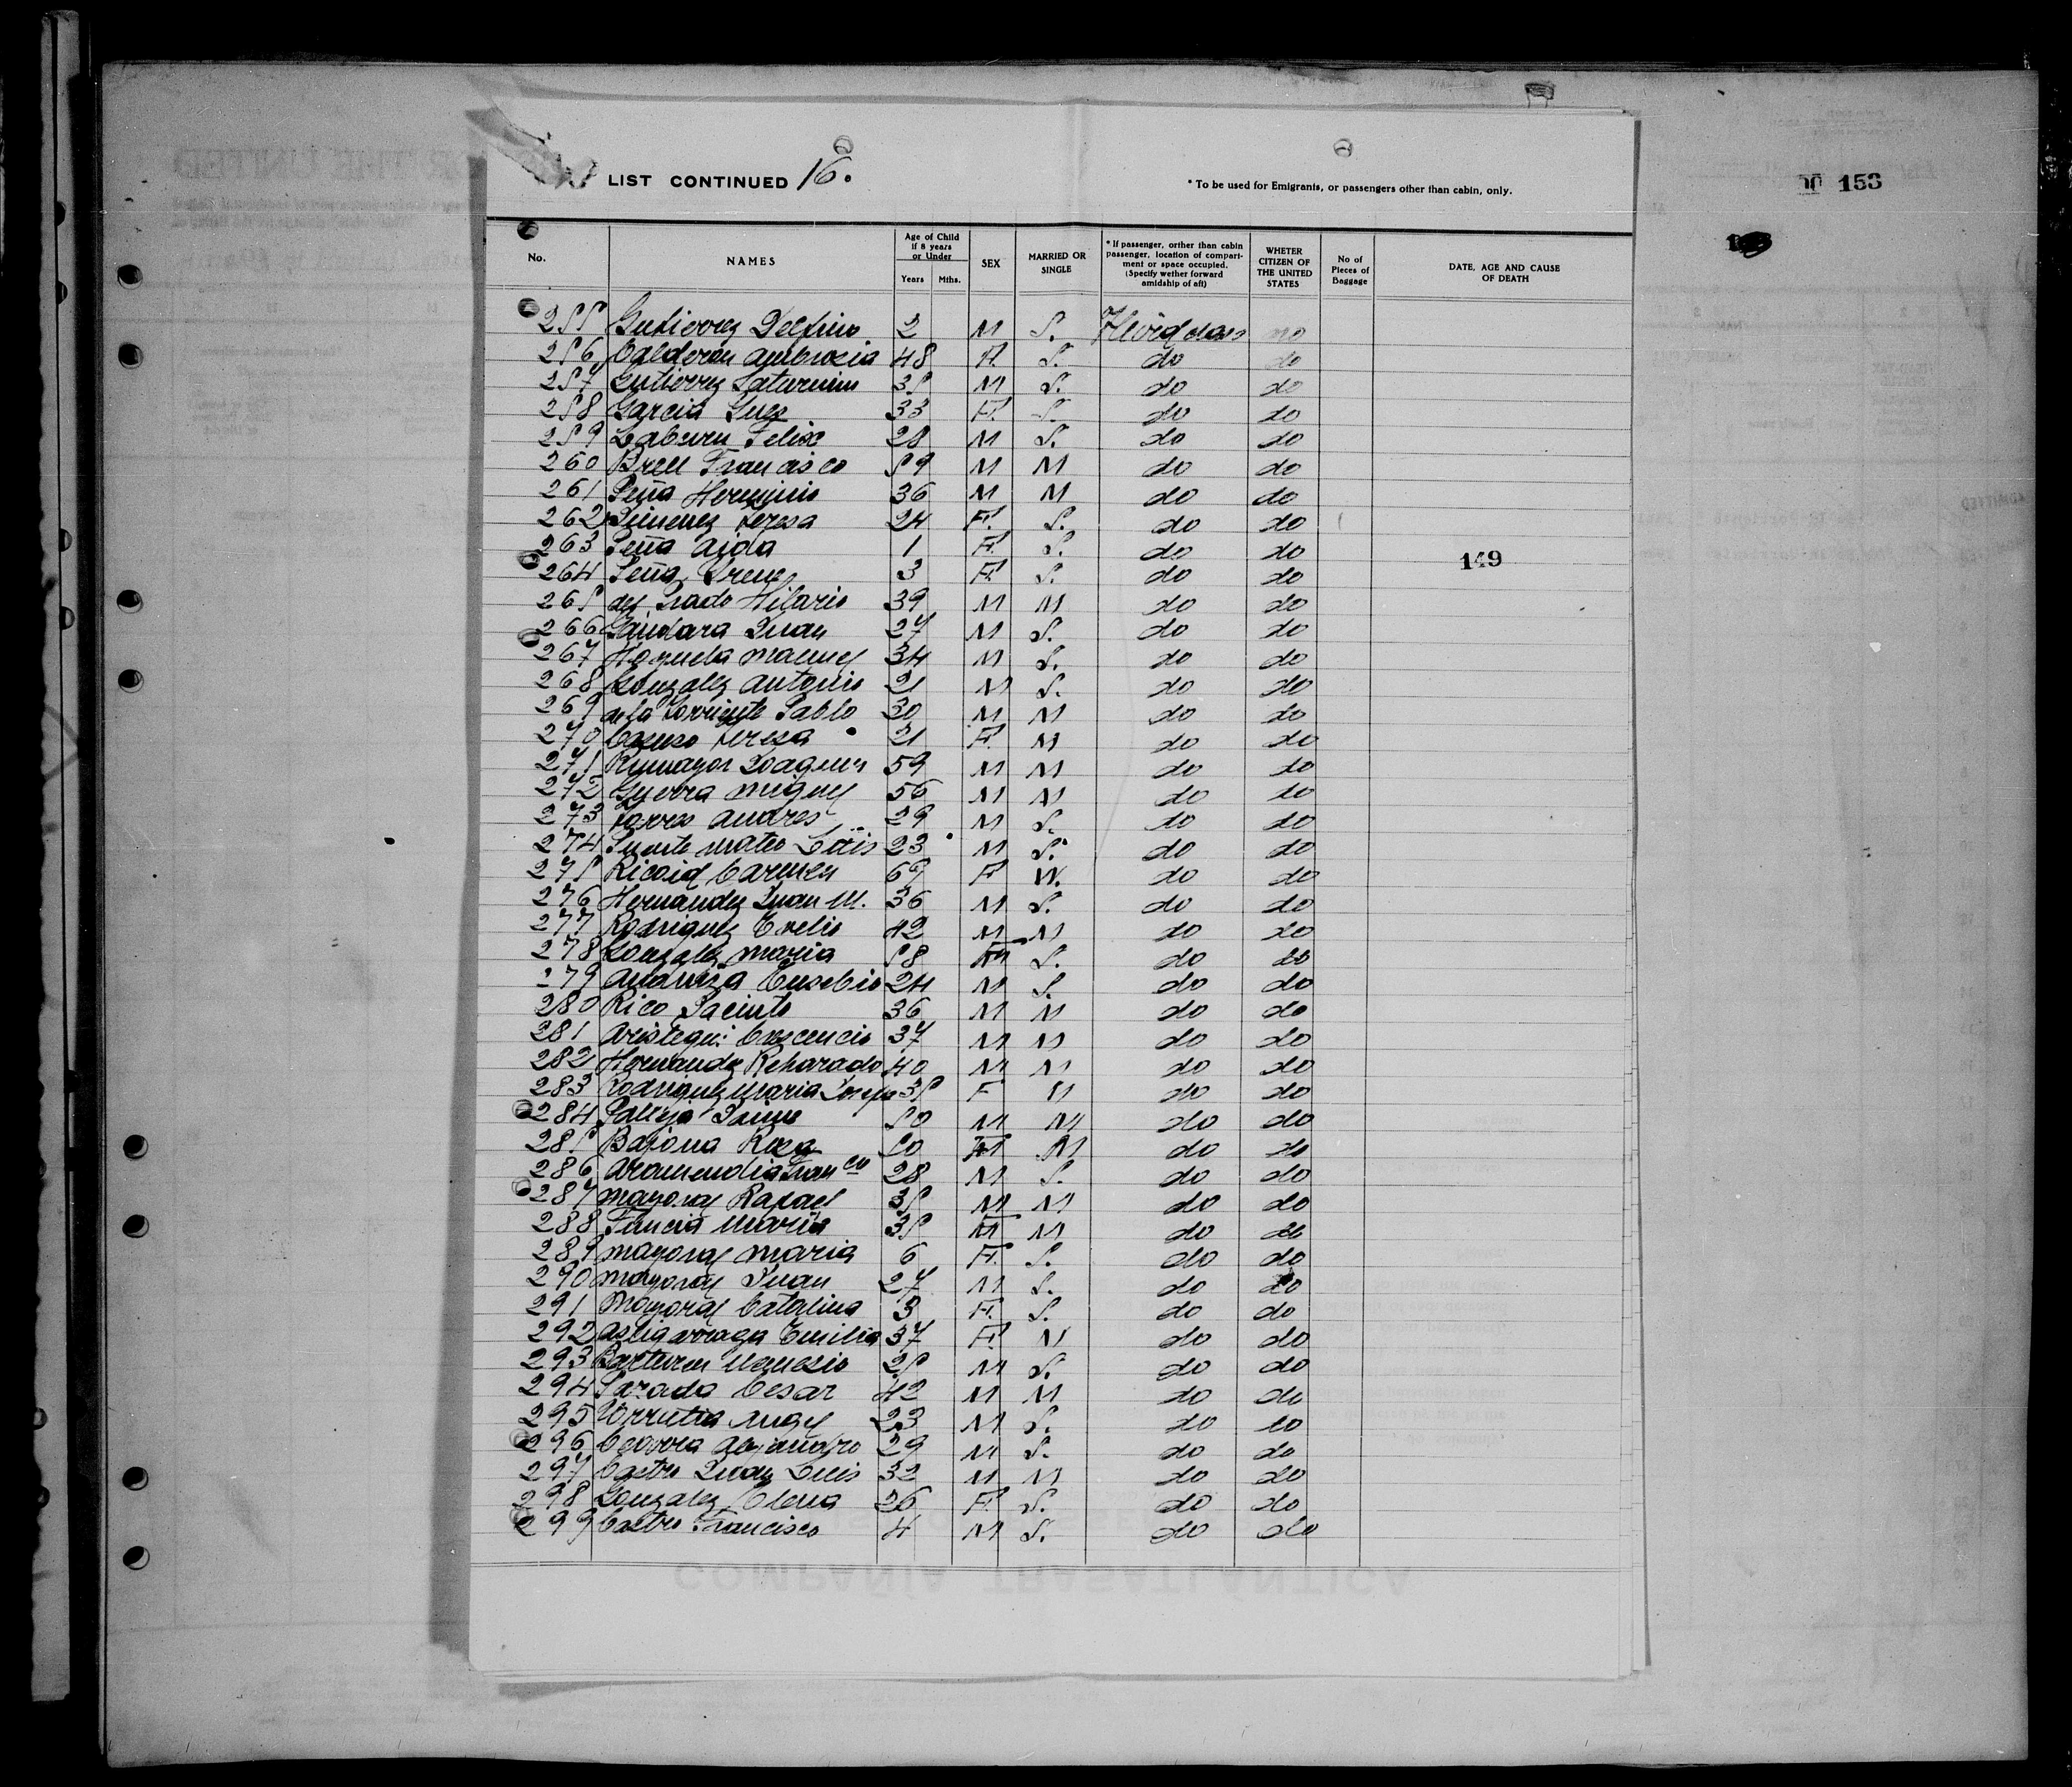 LIST CONTINUED 16.
* To be used for Emigrants, or passengers other than cabin, only.
153
No. NAMES Age of Child if 8 years or Under Years Mths. SEX MARRIED OR SINGLE * If passenger, orther than cabin passenger, location of compartment or space occupied. (Specify wether forward amidship of aft) WHETER CITIZEN OF THE UNITED STATES No of Pieces of Baggage DATE, AGE AND CAUSE OF DEATH
255 Gutierrez Delfino 2 M S. Third class no
256 Calderon Ambrosia 48 F. S. do do
257 Gutierrez Saturnino 35 M S. do do
258 Garcia Luz 33 F. S. do do
259 Felix 28 M S. do do
260 Brell Francisco 59 M M do do
261 Peña Herminio 36 M M do do
262 Jimenez Teresa 24 F. S. do do
263 Peña Aida 1 F. S. do do
149
264 Peña Irene 3 F. S. do do
265 del Prado Hilario 39 M M do do
266 Gandara Juan 27 M S. do do
267 Noguela Manuel 34 M S. do do
268 Gonzalez Antonio 21 M S. do do
269 de la Torriente Pablo 30 M M do do
270 Casuso Teresa 21 F. M do do
271 Rumayor Joaquin 59 M M do do
272 Guerra Miguel 56 M M do do
273 Torres Andres 29 M S. do do
274 Puente Mateo Luis 23 M S. do do
275 Carmen 67 F W. do do
276 Hernandez Juan M. 36 M S. do do
277 Rodriguez Evelio 42 M M do do
278 Gonzalez Maria 58 F S. do do
279 Eusebio 24 M S. do do
280 Rico Jacinto 36 M M do do
281 Aristegui Crescencio 37 M M do do
282 Hernandez Reharado 40 M M do do
283 Rodriguez Maria Josefa 35 F M do do
284 Palleja Jaime 50 M M do do
285 Bajona Rosa 50 F M do do
286 Aramendia Fran co 28 M S. do do
287 Mayoral Rafael 35 M M do do
288 Maria 35 F M do do
289 Mayoral Maria 6 F. S. do do
290 Mayoral Juan 27 M S. do do
291 Mayoral Catalina 3 F. S. do do
292 Astigarraga Emilia 37 F. M do do
293 Barturen Nemesio 25 M S. do do
294 Parada Cesar 42 M M do do
295 Urrutia Angel 23 M S. do do
296 Alejandro 29 M S. do do
297 Castro Juan Luis 32 M M do do
298 Gonzalez Elena 26 F. S. do do
299 Castro Francisco 4 M S. do do
COMPAÑIA TRASATLANTICA